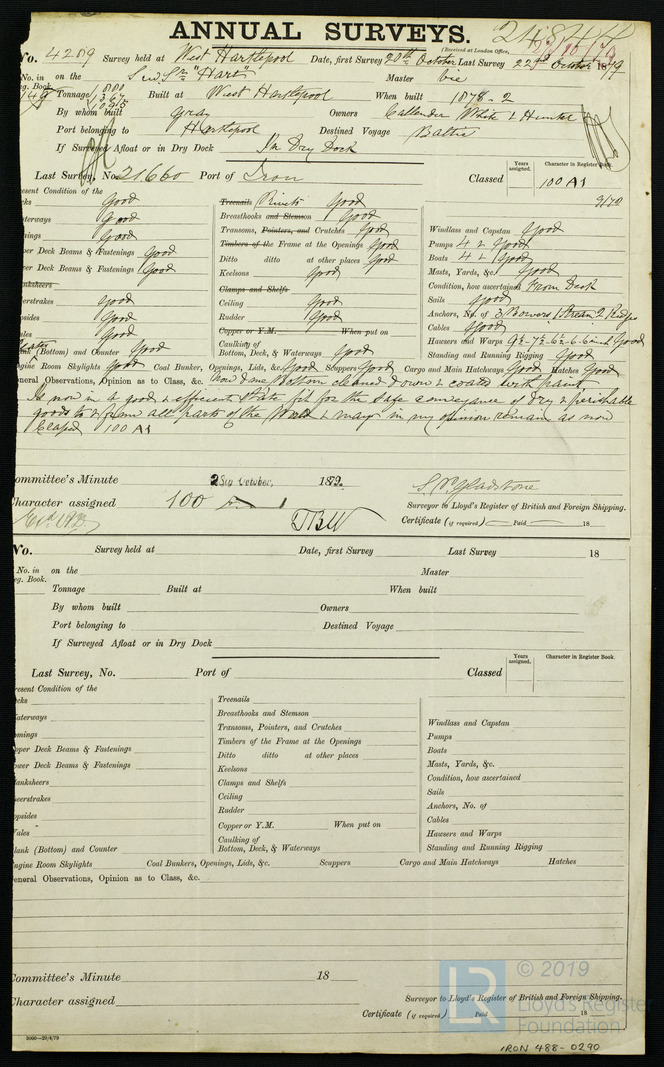 ANNUAL SURVEYS.
(Received at London Office,
No. 4209 Survey held at West Hartlepool Date, first Survey 20th October Last Survey 22nd October 1879
No. in on the S "Hart" Master
eg. Book.
Tonnage Built at West Hartlepool When built 1878-2
By whom built Gray Owners Callender White & Hunter
Port belonging to Hartlepool Destined Voyage Baltic
If Surveyed Afloat or in Dry Dock In Dry Dock
Last Survey, No. 21660 Port of Iron Classed 100 A1
Years assigned. Character in Register Book.
9/78
resent Condition of the
cks Good
aterways Good
mings Good
per Deck Beams & Fastenings Good
wer Deck Beams & Fastenings Good
anksheers
eerstrakes Good
opsides Good
ales Good
ank (Bottom) and Counter Good
Treenails Rivets Good
Breasthooks and Stemson Good
Transoms, Pointers, and Crutches Good
Timbers of the Frame at the Openings Good
Ditto ditto at other places Good
Keelsons Good
Clamps and Shelfs
Ceiling Good
Rudder Good
Copper or Y.M. When put on
Caulking of
Bottom, Deck, & Waterways Good
Windlass and Capstan Good
Pumps 4 & Good
Boats 4 & Good
Masts, Yards, &c. Good
Condition, how ascertained From Deck
Sails Good
Anchors, No. of 3 Bowers 1 Stream 2 Kedges
Cables Good
Hawsers and Warps Good
Standing and Running Rigging Good
ngine Room Skylights Good Coal Bunkers, Openings, Lids, &c. Good Scuppers Good Cargo and Main Hatchways Good Hatches Good
eneral Observations, Opinion as to Class, &c. Now done Bottom cleaned down & coated with paint
Is now in a good & efficient state fit for the safe conveyance of dry & perishable
goods to & from all parts of the World & may in my opinion remain as now
Classed 100 A1
ommittee's Minute October, 1879.
Character assigned 100 A 1
Surveyor to Lloyd's Register of British and Foreign Shipping.
Certificate (if required) Paid 18
No. Survey held at Date, first Survey Last Survey 18
No. in on the Master
eg. Book.
Tonnage Built at When built
By whom built Owners
Port belonging to Destined Voyage
If Surveyed Afloat or in Dry Dock
Last Survey, No. Port of Classed
Years assigned. Character in Register Book.
resent Condition of the
cks
aterways
omings
pper Deck Beams & Fastenings
ower Deck Beams & Fastenings
lanksheers
eerstrakes
opsides
Vales
lank (Bottom) and Counter
Treenails
Breasthooks and Stemson
Transoms, Pointers, and Crutches
Timbers of the Frame at the Openings
Ditto ditto at other places
Keelsons
Clamps and Shelfs
Ceiling
Rudder
Copper or Y.M. When put on
Caulking of
Bottom, Deck, & Waterways
Windlass and Capstan
Pumps
Boats
Masts, Yards, &c.
Condition, how ascertained
Sails
Anchors, No. of
Cables
Hawsers and Warps
Standing and Running Rigging
ngine Room Skylights Coal Bunkers, Openings, Lids, &c. Scuppers Cargo and Main Hatchways Hatches
eneral Observations, Opinion as to Class, &c.
ommittee's Minute 18
Character assigned
Surveyor to Lloyd's Register of British and Foreign Shipping.
Certificate (if required) Paid 18
3000—29/4/79
LR © 2019
Lloyd's Register
Foundation
IRON 488-0290